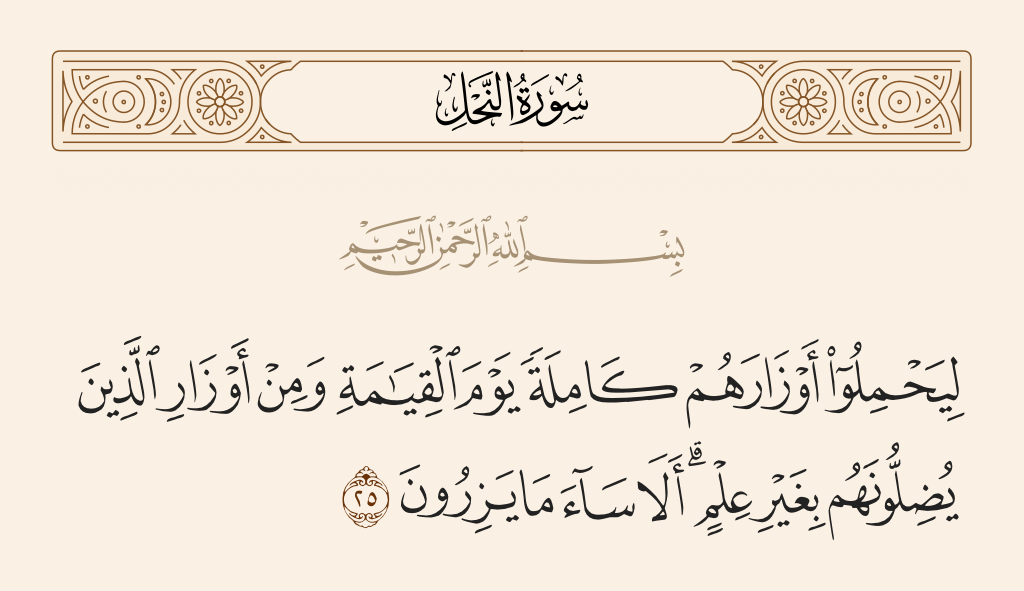 سُورَةُ النَّحْلِ
بِسْمِ ٱللَّهِ ٱلرَّحْمَٰنِ ٱلرَّحِيمِ
لِيَحْمِلُوٓا۟ أَوْزَارَهُمْ كَامِلَةً يَوْمَ ٱلْقِيَـٰمَةِ وَمِنْ أَوْزَارِ ٱلَّذِينَ
يُضِلُّونَهُم بِغَيْرِ عِلْمٍ ۗ أَلَا سَآءَ مَا يَزِرُونَ ٢٥